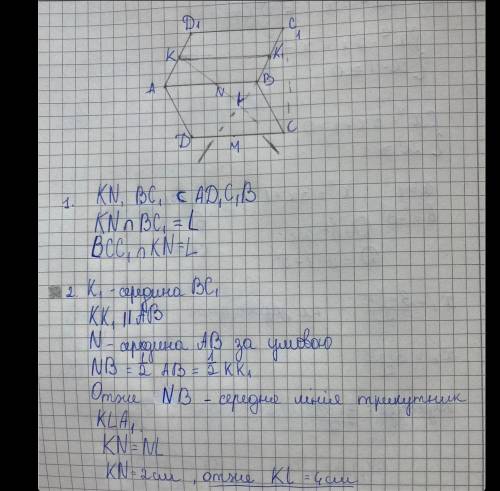 D₁ C₁
K K₁
A N B
L
D M C
1. KN, BC₁ ⊂ AD₁C₁B
KN ∩ BC₁ = L
BCC₁ ∩ KN = L
2. K₁ - середина BC₁
KK₁ || AB
N - середина AB за умовою
NB = 1/2 AB = 1/2 KK₁
Отже NB - середня лінія трикутник
KLA₁
KN = NL
KN = 2см, отже KL = 4см